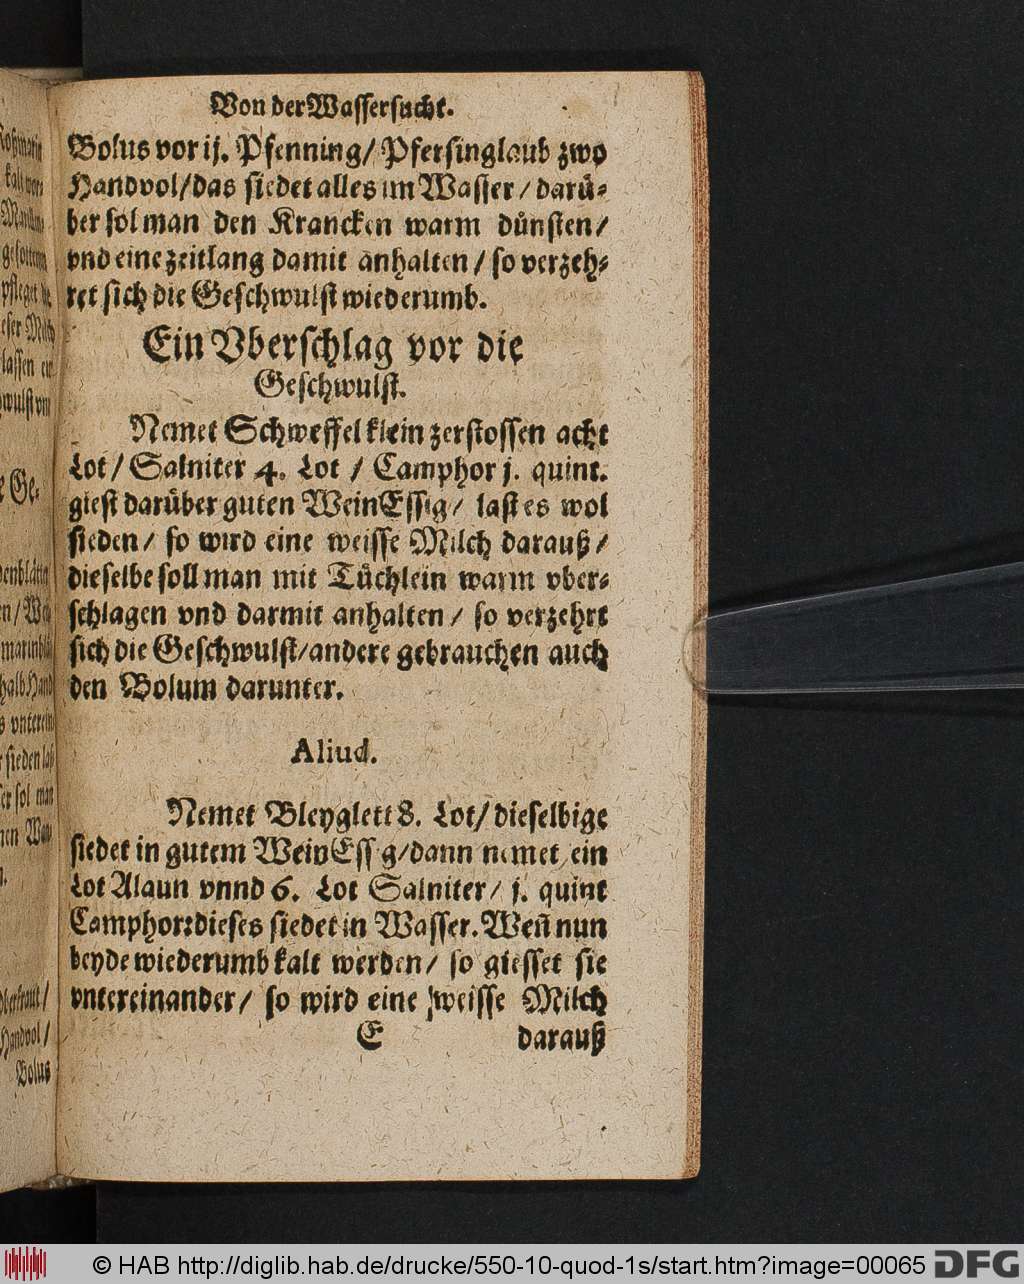 Von der Wassersucht.
Bolus vor ij. Pfenning/ Pfersinglaub zwo
Handvol/ das siedet alles im Wasser/ darü-
ber sol man den Krancken warm dünsten/
vnd eine zeitlang damit anhalten/ so verzeh-
ret sich die Geschwulst wiederumb.
Ein Vberschlag vor die
Geschwulst.
Nemet Schweffel klein zerstossen acht
Lot/ Salniter 4. Lot/ Camphor j. quint.
giest darüber guten WeinEssig/ last es wol
sieden/ so wird eine weisse Milch darauß/
dieselbe soll man mit Tüchlein warm vber-
schlagen vnd darmit anhalten/ so verzehrt
sich die Geschwulst/ andere gebrauchen auch
den Bolum darunter.
Aliud.
Nemet Bleyglett 8. Lot/ dieselbige
siedet in gutem WeinEssig/ dann nemet ein
Lot Alaun vnnd 6. Lot Salniter/ j. quint
Camphor: dieses siedet in Wasser. Weñ nun
beyde wiederumb kalt werden/ so giesset sie
vntereinander/ so wird eine weisse Milch
E darauß
Handvol/
Bolus
© HAB http://diglib.hab.de/drucke/550-10-quod-1s/start.htm?image=00065 DFG